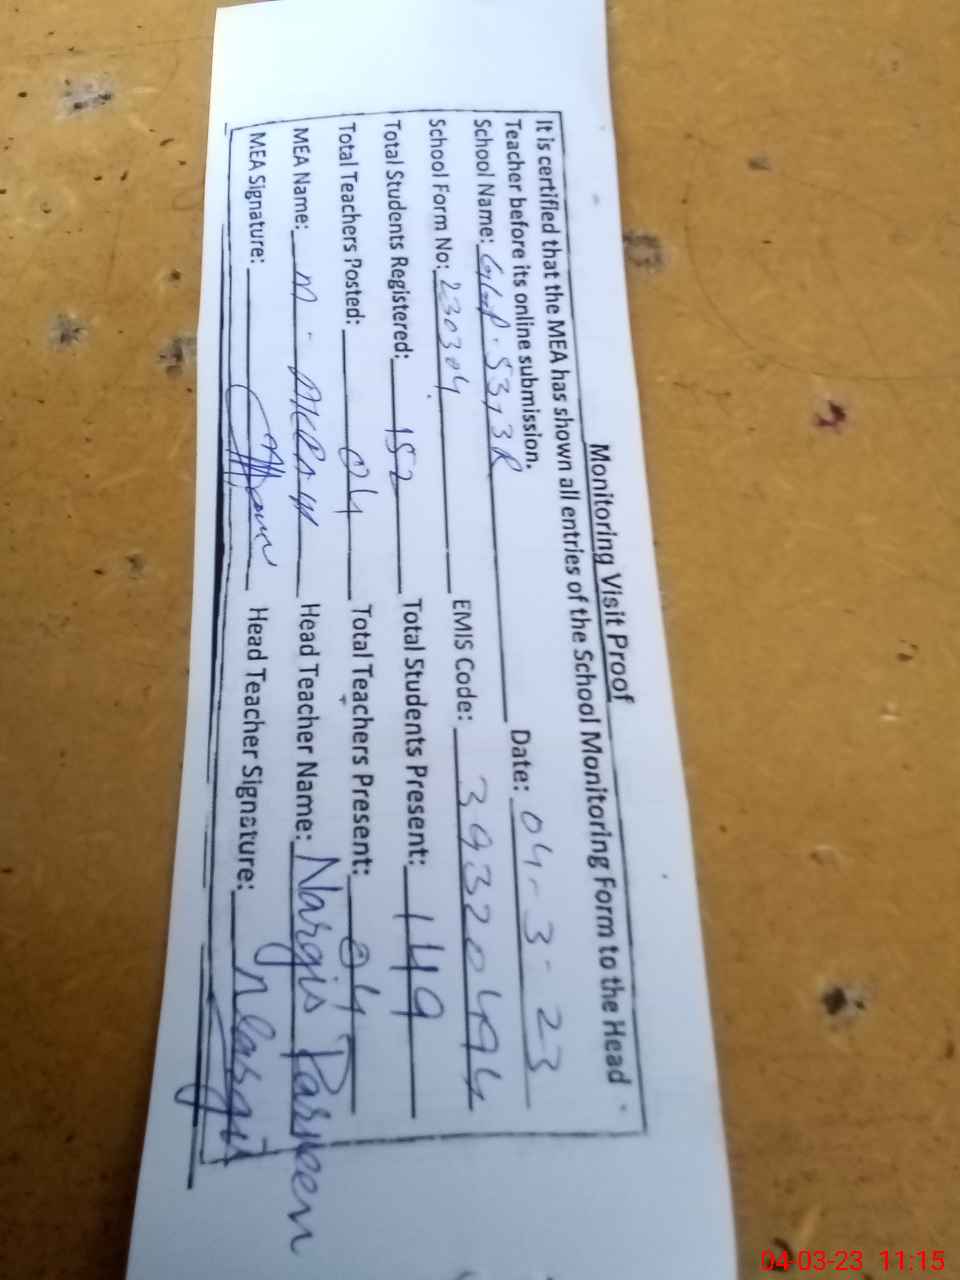 Monitoring Visit Proof
It is certified that the MEA has shown all entries of the School Monitoring Form to the Head
Teacher before its online submission.
School Name: 53/3R Date: 04-3-23
School Form No: 230304 EMIS Code: 39320494
Total Students Registered: 152 Total Students Present: 149
Total Teachers Posted: 04 Total Teachers Present: 04
MEA Name: M. AKRAM Head Teacher Name: Nargis Parveen
MEA Signature: Head Teacher Signature: Nargis
04-03-23 11:15